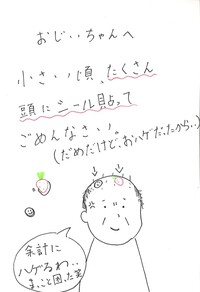 おじいちゃんへ
小さい頃、たくさん
頭にシール貼って
ごめんなさい
(だめだけど、おハゲだったから‥)
余計に
ハゲるわ‥
まっこと困った笑